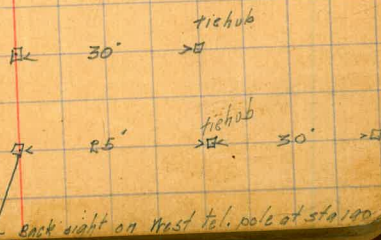 tiehub
30'
tiehub
25' 30'
Back sight on West tel. pole at sta 190